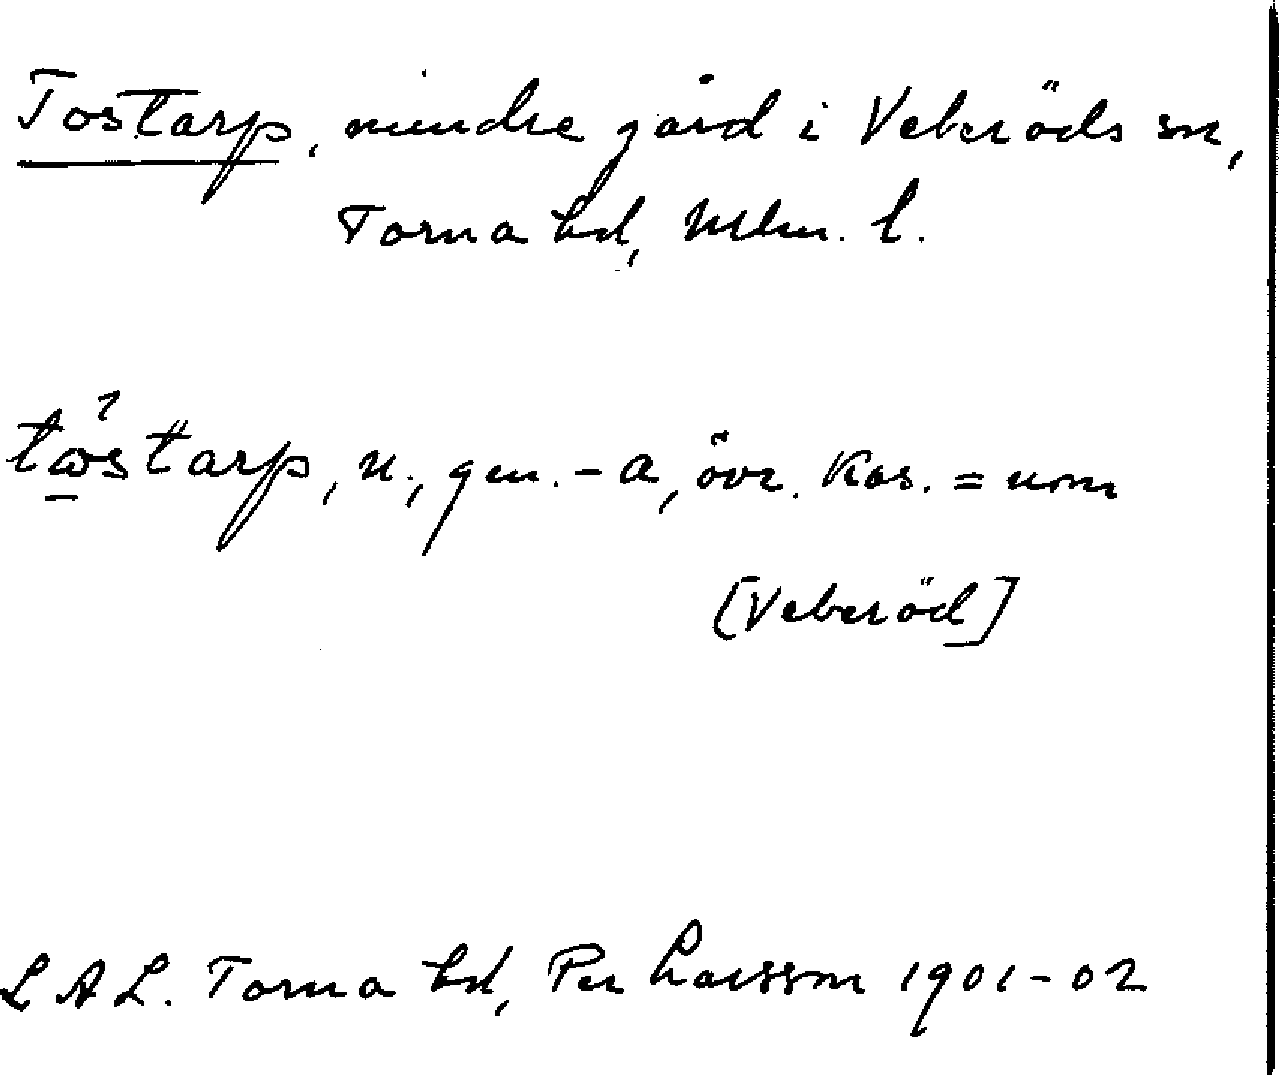 Tostarp, mindre gård i Veberöds sn,
Torna hd, Mlm. l.
tώ̱starp, n., gen. -a, övr. kas. = nom
[Veberöd]
LAL. Torna hd, Per Larsson 1901-02